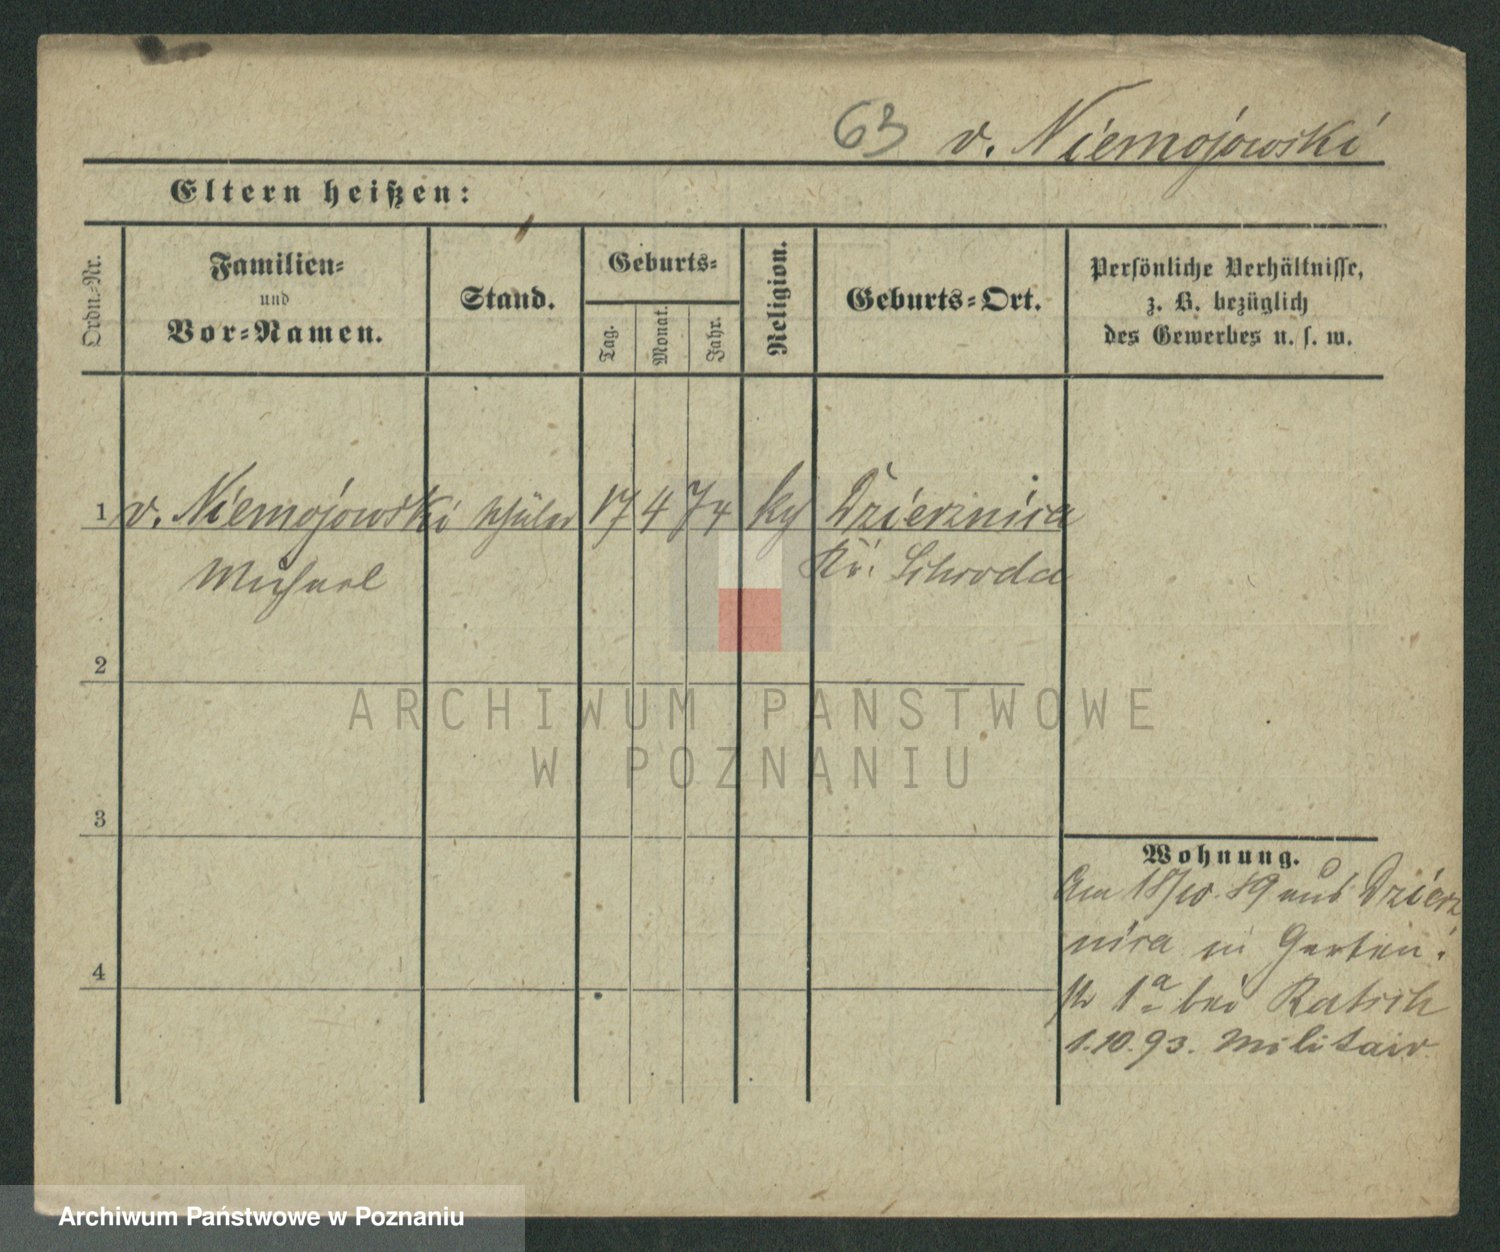 63 v. Niemojowski
Eltern heißen:
Ordn.-Nr.
Familien-
und
Vor-Namen.
Stand.
Geburts-
Tag.
Monat.
Jahr.
Religion.
Geburts-Ort.
Persönliche Verhältnisse,
z. B. bezüglich
des Gewerbes u. s. w.
1 v. Niemojowski Schüler 17 4 74 Dzierznica
Michael Kr. Schroda
2
3
4
Wohnung.
Am 18/10. 89 aus Dzierz
nica in Garten
1a bei Ratsch
1.10.93. Militair
ARCHIWUM PAŃSTWOWE
W POZNANIU
Archiwum Państwowe w Poznaniu